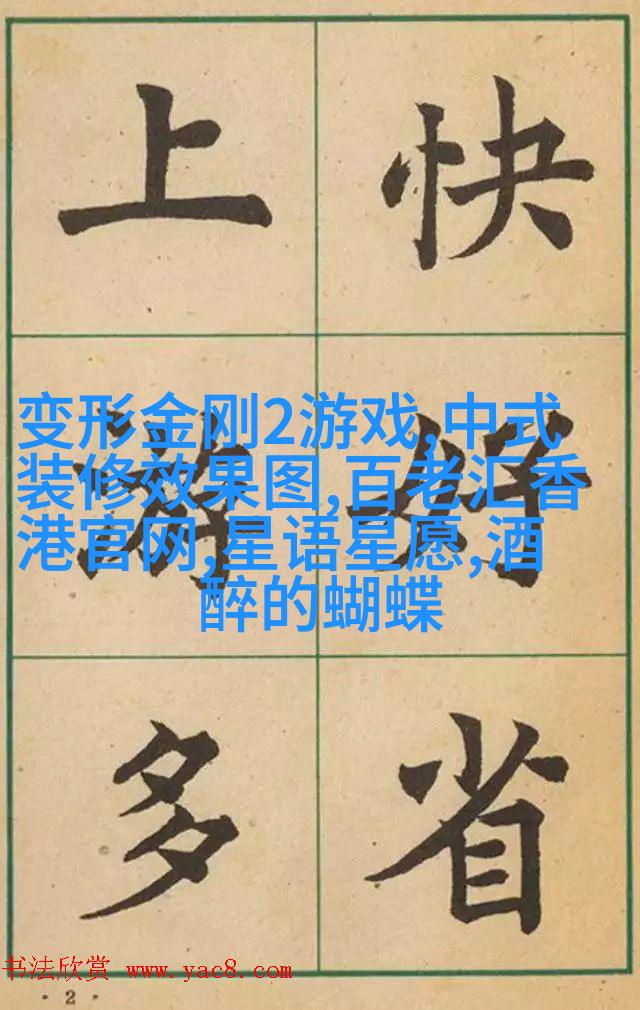 上游多
快好省
变形金刚2游戏,中式
装修效果图,百老汇香
港官网,星语星愿,酒
醉的蝴蝶
书法欣赏 www.yac8.com
·2·